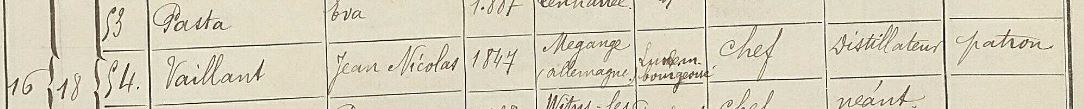 53 Pasta Eva
16 18 54. Vaillant Jean Nicolas 1847 Megange (allemagne) Luxembourgeoise chef Distillateur patron
chef néánt.